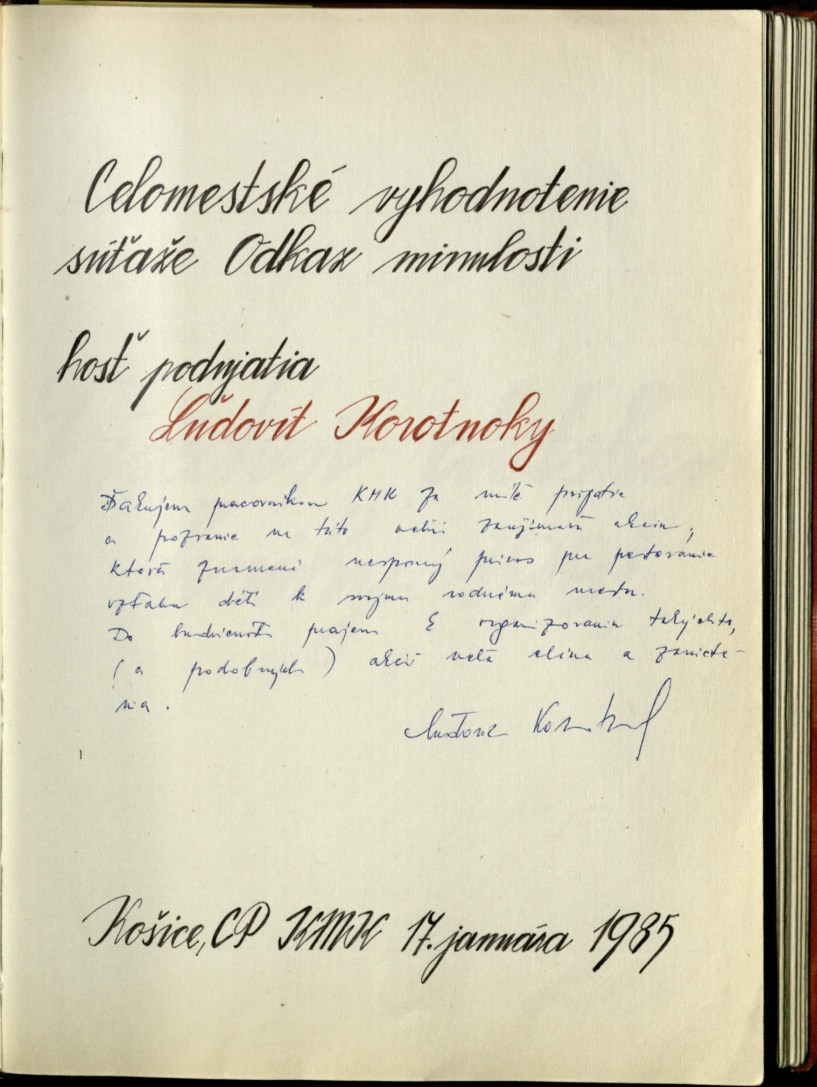 Celomestské vyhodnotenie
súťaže Odkaz minulosti
hosť podujatia
Ľudovít Korotnoky
Ďakujem pracovníkom KMK za milé prijatie
a pozvanie na túto veľmi zaujímavú akciu,
ktorá znamená nesporný prínos pre pestovanie
vzťahu detí k svojmu rodnému mestu.
Do budúcnosti prajem k organizovaniu takýchto,
(a podobných) akcií veľa elánu a zaniete-
nia.
Košice, CP KMK 17. januára 1985